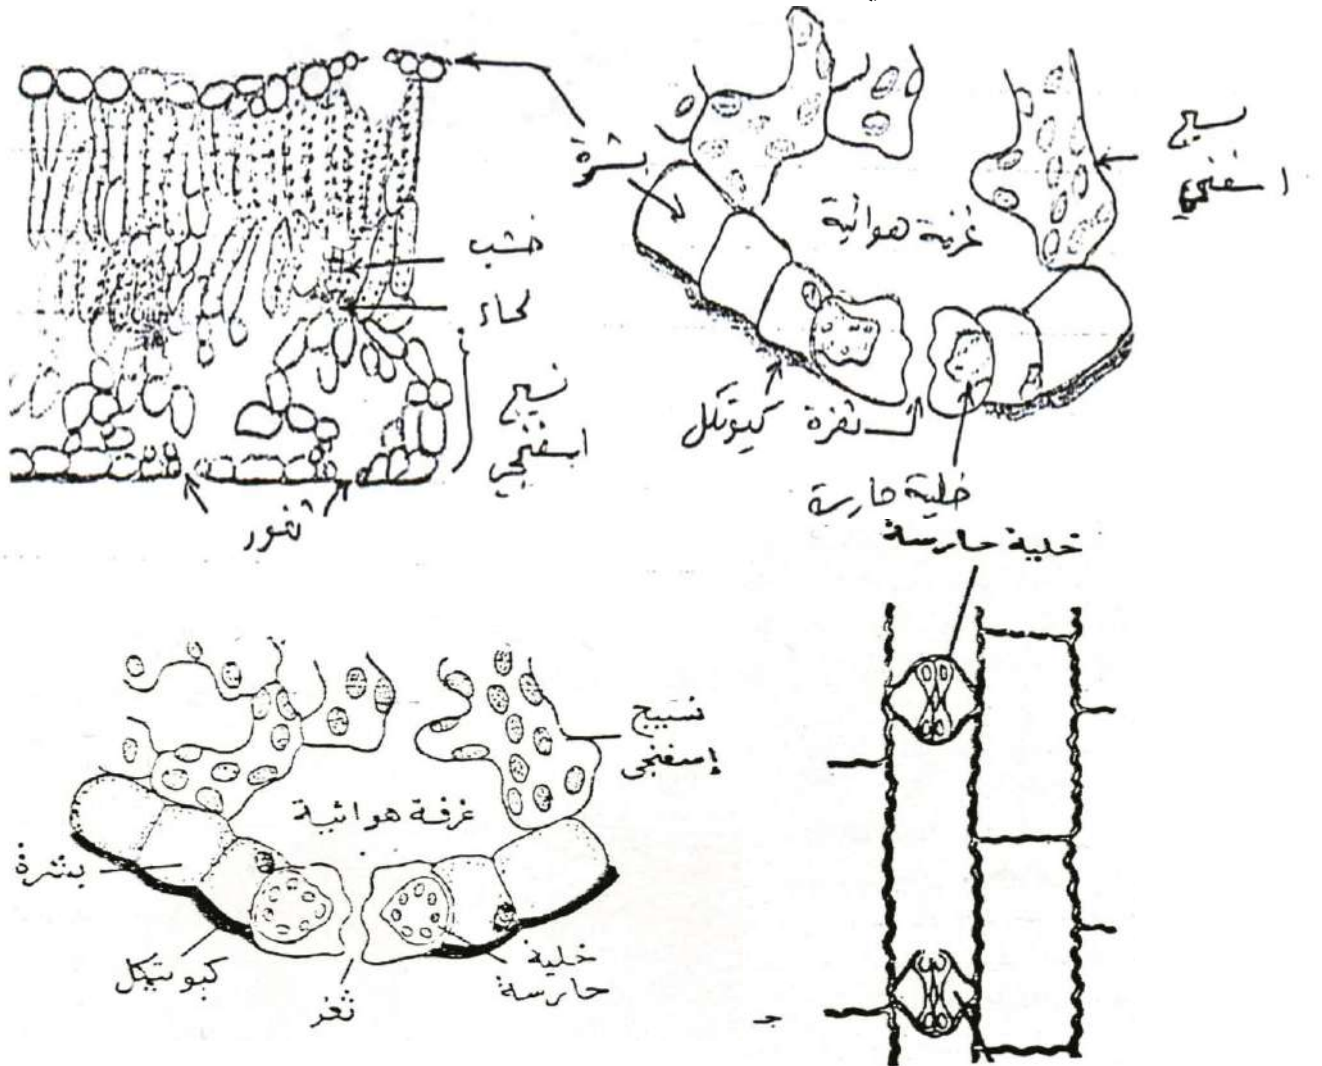 بشرة
خشب
لحاء
نسيج
اسفنجي
ثغور
نسيج
اسفنجي
غرفة هوائية
كيوتكل
ثغرة
خلية حارسة
خلية حارسة
نسيج
إسفنجى
غرفة هوائية
بشرة
كيوتيكل
ثغر
خلية
حارسة
جـ